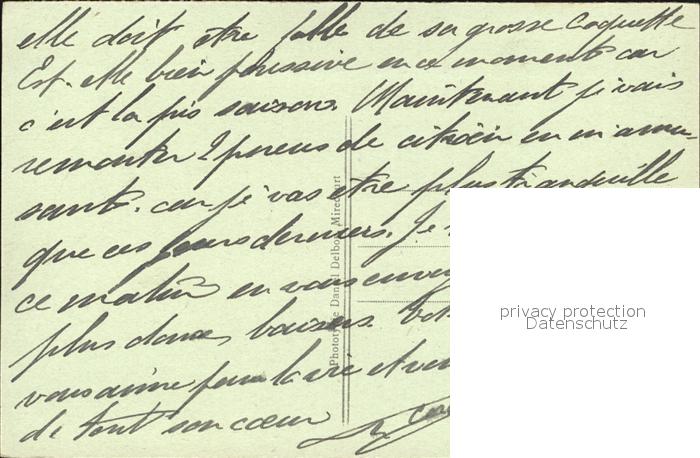 elle doit être folle de sa grosse coquette
Est-elle bien poussive en ce moment car
c'est la pis saison. Maintenant je vais
remonter 2 pneus de citroën en m'amu-
sant. car je vas être plus tranquille
que ces jours derniers. Je
ce matin en vous envoy
plus doux baisers. Vot
vous aime pour la vie et
de tout son cœur
Phototypie Daniel Delboy, Mirecourt
privacy protection
Datenschutz